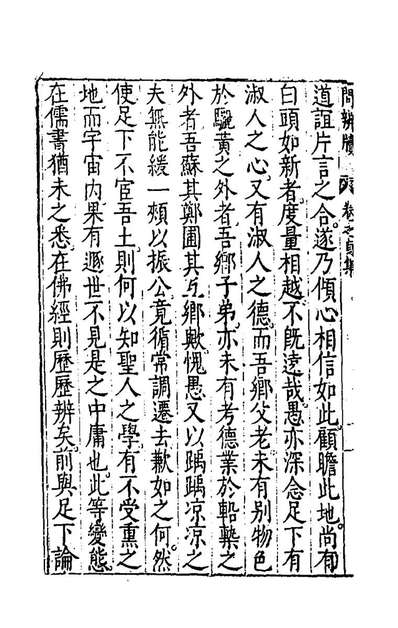 問辨牘 卷之貞集
道誼片言之合。遂乃傾心相信如此。顧瞻此地。尚有
白頭如新者。度量相越。不既遠哉。愚亦深念足下有
淑人之心。又有淑人之德。而吾鄉父老。未有別物色
於驪黃之外者。吾鄉子弟。亦未有考德業於韜槩之
外者。吾蘇其鄭圃其互鄉歟。愧愚又以踽踽凉凉之
夫。無能緩一頰以振公。竟循常調遷去。歉如之何。然
使足下不官吾土。則何以知聖人之學。有不受熏之
地。而宇宙內果有遯世不見是之中庸也。此等變態。
在儒書猶未之悉。在佛經則歷歷辨矣。前與足下論